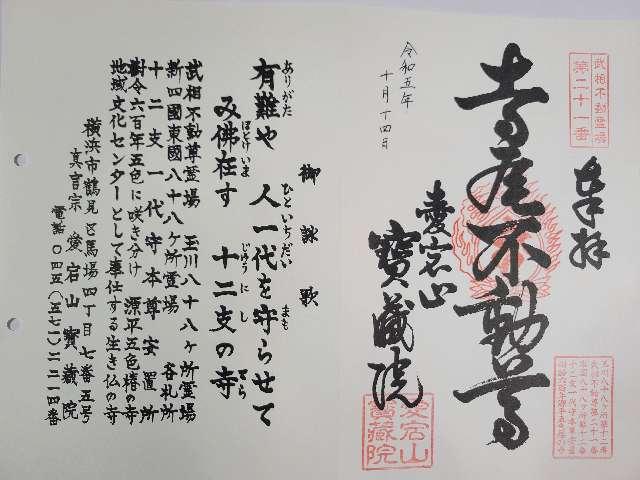 武相不動霊場
第二十一番
奉拝
不動尊
愛宕山
寳蔵院
令和五年
十月十四日
愛宕山
寳蔵院
御詠歌
有難や 人一代を守らせて
ありがた ひといちだい まも
み佛在す 十二支の寺
ほとけいま じゅうにし てら
武相不動尊霊場 玉川八十八ヶ所霊場
新四國東國八十八ヶ所霊場 各札所
十二支一代守本尊安置所
樹令六百年五色に咲き分け 源平五色椿の寺
地域文化センターとして奉仕する生き仏の寺
横浜市鶴見区馬場四丁目七番五号
真言宗 愛宕山寳蔵院
電話〇四五(五七一)二二一四番